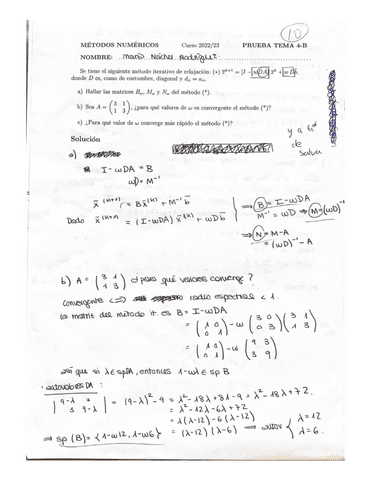 10
MÉTODOS NUMÉRICOS Curso 2022/23 PRUEBA TEMA 4-B
NOMBRE: Mario Núñez Rodríguez
Se tiene el siguiente método iterativo de relajación: (*) x̄^{k+1} = [I − ωDA] x̄^k + ωD b̄,
donde D es, como de costumbre, diagonal y d_ii = a_ii.
a) Hallar las matrices B_ω, M_ω y N_ω del método (*).
b) Sea A = (3 1
1 3), ¿para qué valores de ω es convergente el método (*)?
c) ¿Para qué valor de ω converge más rápido el método (*)?
Solución
y a ti
de
salva
a)
I − ωDA = B
ωD = M⁻¹
x̄^(k+1) = B x̄^(k) + M⁻¹ b̄
Dado x̄^(k+1) = (I − ωDA) x̄^(k) + ωD b̄
⟹ B = I − ωDA
M⁻¹ = ωD ⟹ M = (ωD)⁻¹
⟹ N = M − A
= (ωD)⁻¹ − A
b) A = (3 1
1 3) ¿para qué valores converge?
Convergente ⟺ radio espectral < 1.
la matriz del método it. es B = I − ωDA
= (1 0
0 1) − ω (3 0
0 3) (3 1
1 3)
= (1 0
0 1) − ω (9 3
3 9)
así que si λ ∈ sp DA, entonces 1 − ωλ ∈ sp B
· autovalores DA:
|9−λ 3
3 9−λ| = (9−λ)² − 9 = λ² − 18λ + 81 − 9 = λ² − 18λ + 72
= λ² − 12λ − 6λ + 72
= λ(λ−12) − 6(λ−12)
= (λ−12)(λ−6) ⟹ autov { λ = 12
λ = 6.
⟹ sp(B) = {1 − ω12, 1 − ω6}